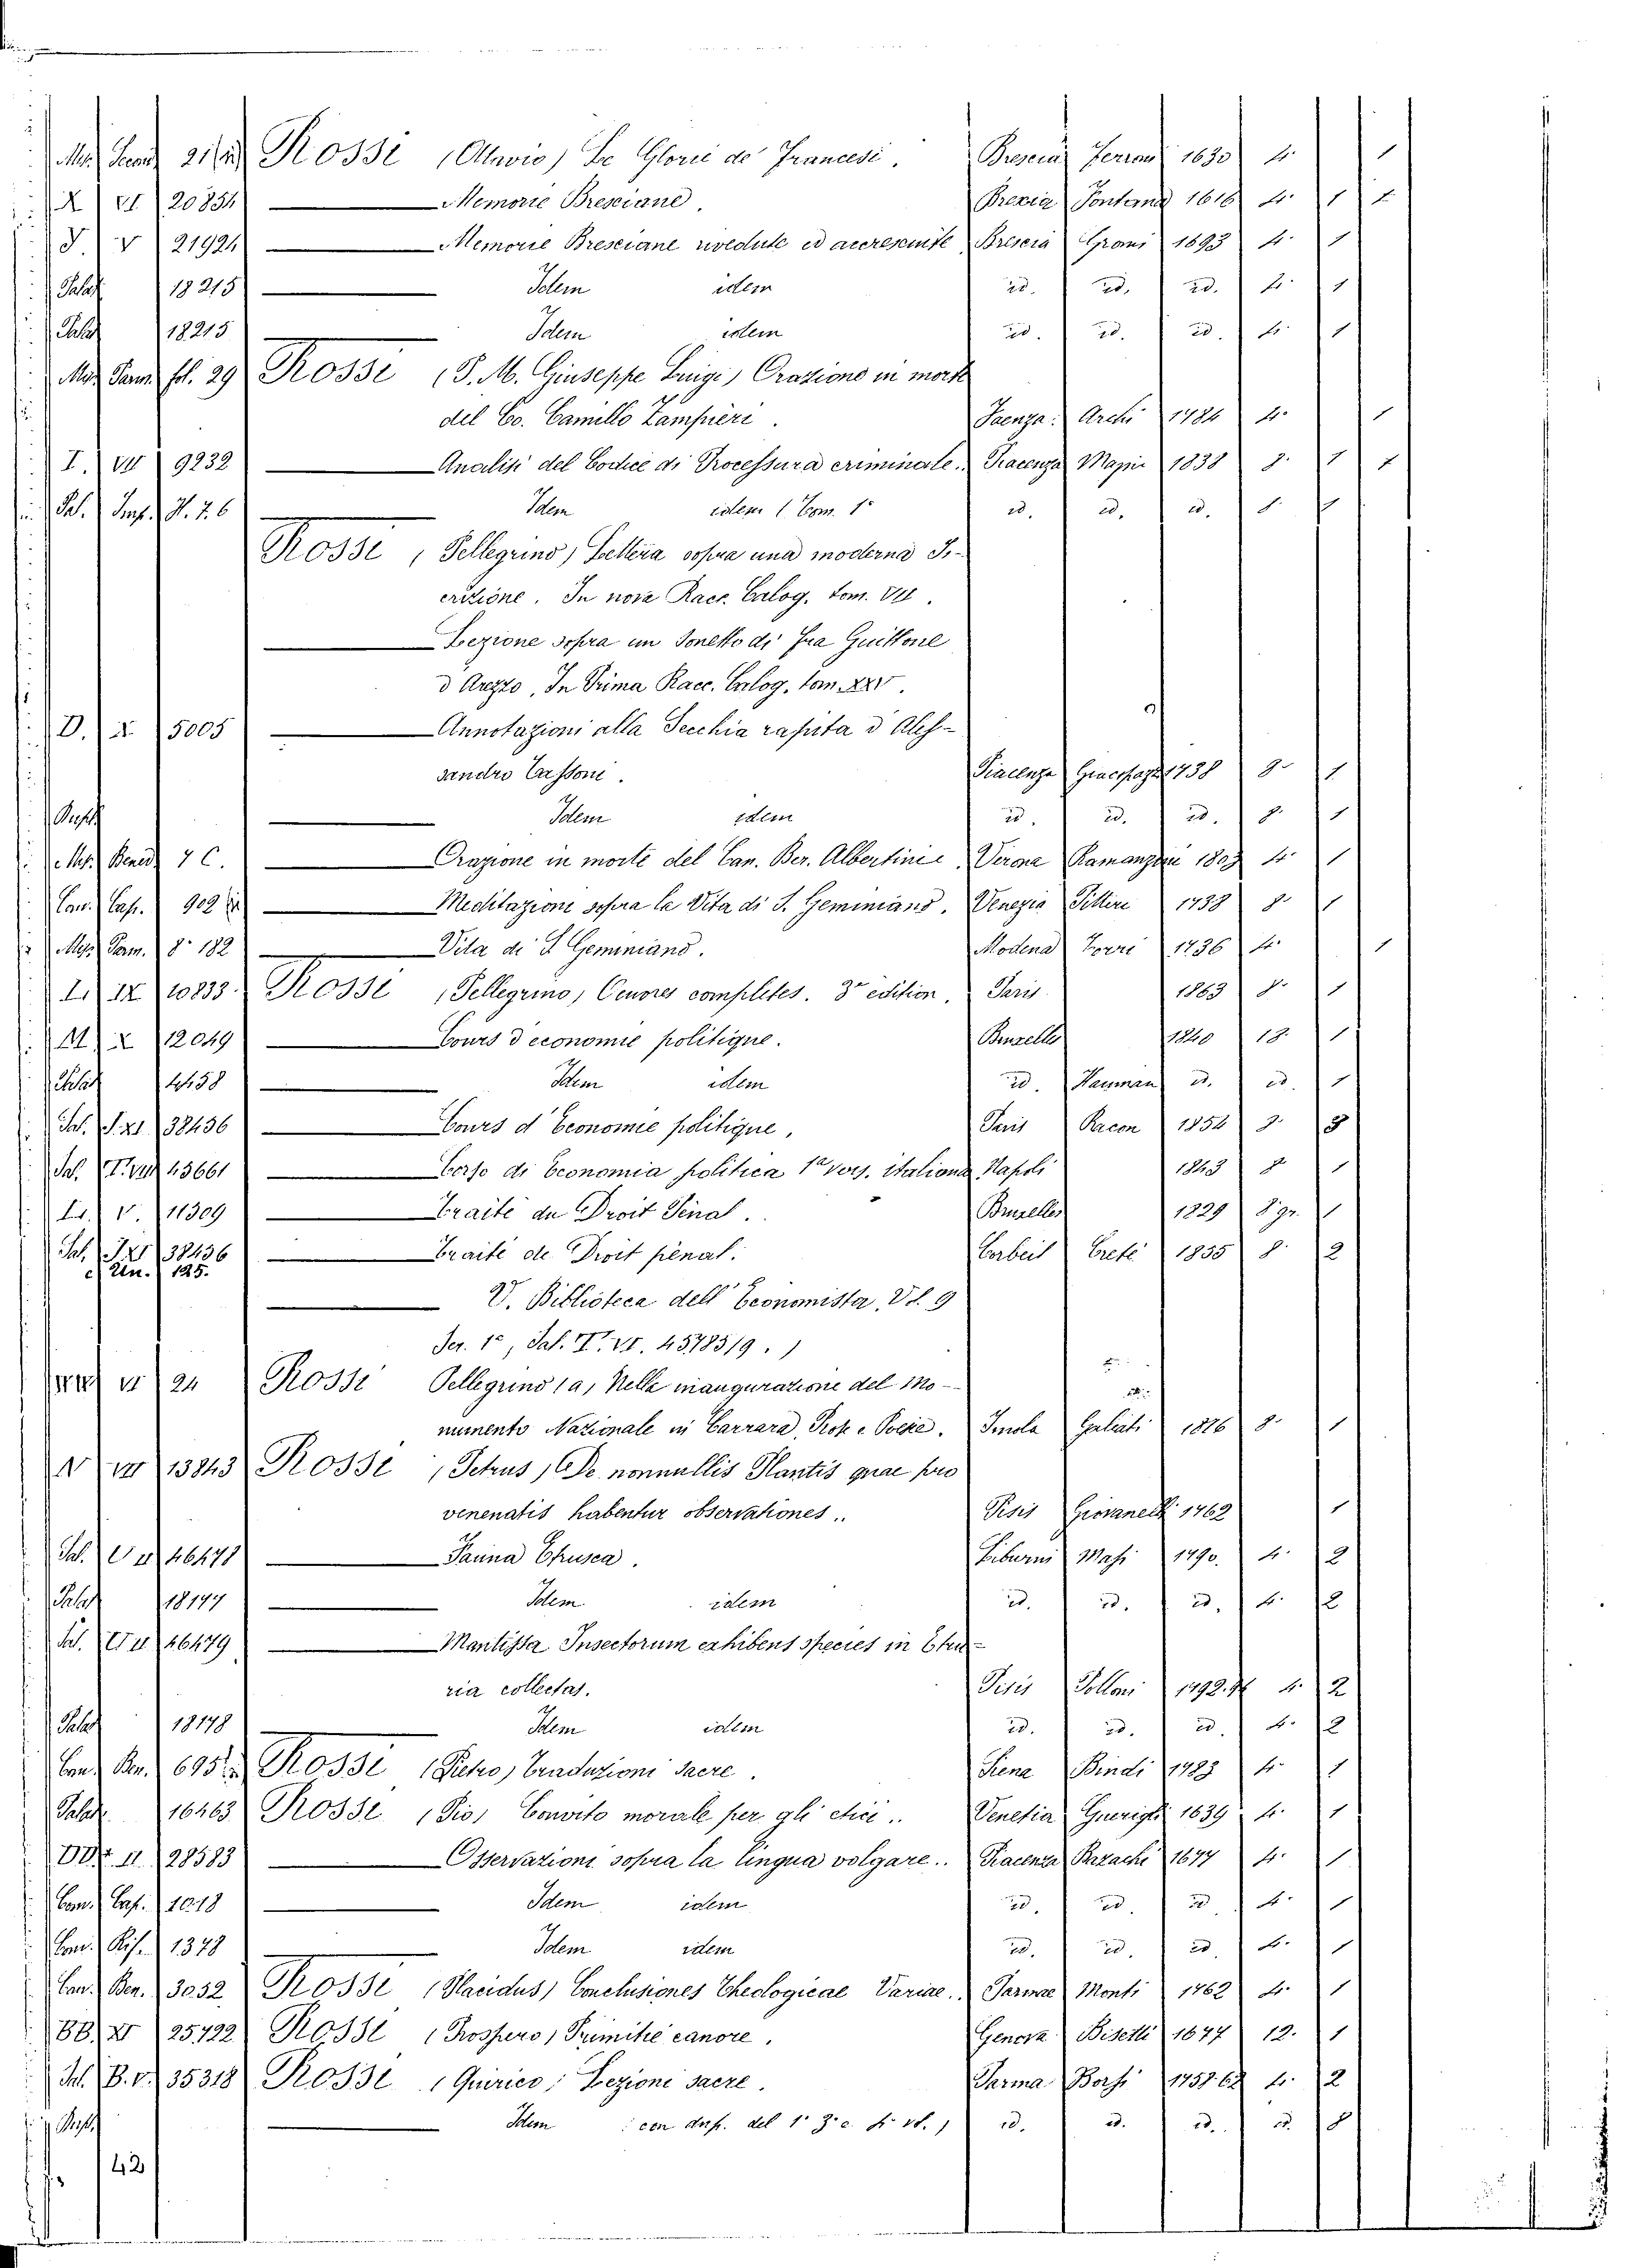 Rossi (Ottavio) Le Glorie de' Francesi. Brescia 1630 4.
X VI 20854 Memorie Bresciane. Brexia Fontana 1616 4. 1
V 21924 Memorie Bresciane rivedute ed accresciute Brescia Gromi 1693 4. 1
Palat 18215 Idem idem id. id. id. 4. 1
Palat 18215 Idem idem id. id. id. 4. 1
Mss. Parm. fol. 29 Rossi (P. M. Giuseppe Luigi) Orazione in morte
del Co. Camillo Zampieri. Faenza. Archi 1784 4. 1
I. VII 9232 Analisi del Codice di Processura criminale. Piacenza 1838 8. 1
Sal. H. 7. 6 Idem idem (Tom. 1° id. id. id. 8.
Rossi (Pellegrino) Lettera sopra una moderna In-
crizione. In nova Racc. Calog. tom. VII.
Lezione sopra un Sonetto di Fra Guittone
d'Arezzo, In Prima Racc. Calog. tom. XXV.
D. X 5005 Annotazioni alla Secchia rapita d'Ales-
sandro Tassoni. Piacenza 1738 8. 1
Idem idem id. id. id. 8. 1
7 C. Orazione in morte del Can. Ber. Albertini Verona Ramanzini 4. 1
Con. Cap. 902 Meditazioni sopra la Vita di S. Geminiano. Venezia Pitteri 1738 8. 1
Mss. Parm. 8° 182 Vita di S. Geminiano. Modena 1736 4. 1
L. IX 10833 Rossi (Pellegrino) Oeuvres completes. 3e edition. Paris 1863 8. 1
M. X 12049 Cours d'economie politique. Bruxelles 1840 18. 1
Palat 4458 Idem idem id. Hauman id. id. 1
Sal. S. XI 38436 Cours d'Economie politique. Paris Racon 1854 8. 3
Sal. T. VII 43661 Corso di Economia politica 1a vers. italiana Napoli 1843 8. 1
L. V. 11309 Traité du Droit Pénal. Bruxelles 1829 8 gr. 1
Sal. S. XI 38436 Traité de Droit pénal. Corbeil Creté 1835 8. 2
e Un. 125.
V. Biblioteca dell'Economista, Vol. 9
Ser. 1a, Sal. T. VI. 45785/9.)
VI 24 Rossi Pellegrino (a) Nella inaugurazione del Mo-
numento Nazionale in Carrara, Prose e Poesie. Imola Galeati 1876 8. 1
V VII 13843 Rossi (Petrus) De nonnullis Plantis quae pro
venenatis habentur observationes. Pisis Giovanelli 1762 1
Sal. 46478 Fauna Etrusca. Liburni Masi 1790. 4. 2
Palat 18177 Idem idem id. id. id. 4. 2
Sal. 46479 Mantissa Insectorum exhibens species in Etru-
ria collectas. Pisis Polloni 1792. 4. 2
Palat 18178 Idem idem id. id. id. 4. 2
Con. Ben. 695 Rossi (Pietro) Traduzioni sacre. Siena Bindi 1783 4. 1
Palat 16463 Rossi (Pio) Convito morale per gli etici. Venetia Guerigli 1639 4. 1
28583 Osservazioni sopra la lingua volgare. Piacenza Bazachi 1677 4. 1
Con. Cap. 1018 Idem idem id. id. id. 4. 1
Con. Rif. 1378 Idem idem id. id. id. 4. 1
Con. Ben. 3052 Rossi (Placidus) Conclusiones Theologicae Variae. Parmae Monti 1762 4. 1
BB. XI 25422 Rossi (Prospero) Primitie canore. Genova 1677 12. 1
Sal. B. V. 35318 Rossi (Quirico) Lezioni sacre. Parma Borsi 1757.62 4. 2
Idem (con dup. del 1° 3° e) id. id. id. id. 8
42